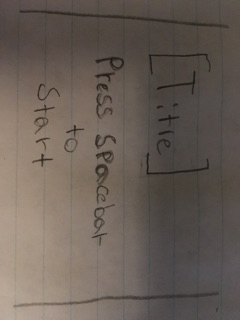 [Title]
Press Spacebar
to
Start